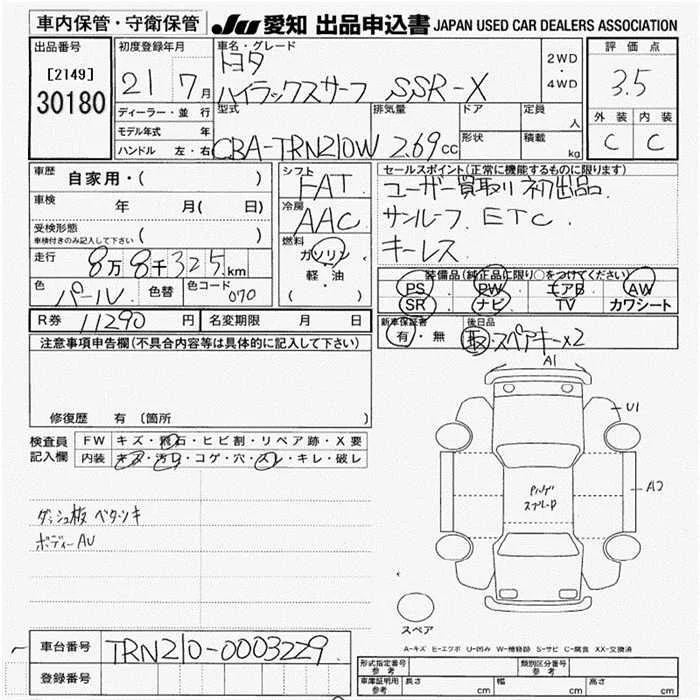 車内保管・守衛保管
JU 愛知 出品申込書 JAPAN USED CAR DEALERS ASSOCIATION
出品番号
[2149]
30180
初度登録年月
21 7月
ディーラー・並行
モデル年式 年
ハンドル 左・右
車名・グレード
トヨタ
ハイラックスサーフ SSR-X
2WD
・
4WD
型式
CBA-TRN210W
排気量
2.69cc
ドア
形状
定員
人
積載
kg
評価点
3.5
外装 内装
C C
車歴 自家用・( )
車検 年 月( 日)
受検形態
車検付きのみ記入して下さい ( )
走行 8万8千325km
色 パール 色替 色コード 070
シフト
FAT
冷房
AAC
燃料
ガソリン
・
軽・油
( )
セールスポイント(正常に機能するものに限ります)
ユーザー買取り 初出品.
サンルーフ. ETC.
キーレス.
装備品(純正品に限り○をつけてください)
PS PW エアB AW
SR ナビ TV カワシート
R券 11290円 名変期限 月 日
新車保証書 後日品
有・無 取・スペアキーx2
注意事項申告欄(不具合内容等は具体的に記入して下さい)
修復歴 有 〔箇所 〕
検査員 FW キズ・飛石・ヒビ割・リペア跡・X要
記入欄 内装 キズ・汚レ・コゲ・穴・スレ・キレ・破レ
ダッシュ板 ベタツキ
ボディーAU
A1
U1
A2
スペア
A-キズ E-エクボ U-凹み W-補修跡 S-サビ C-腐食 XX-交換済
車台番号 TRN210-0003229
登録番号
形式指定番号 参考 類別区分番号 参考
車庫証明用 参考 長さ cm 幅 cm 高さ cm